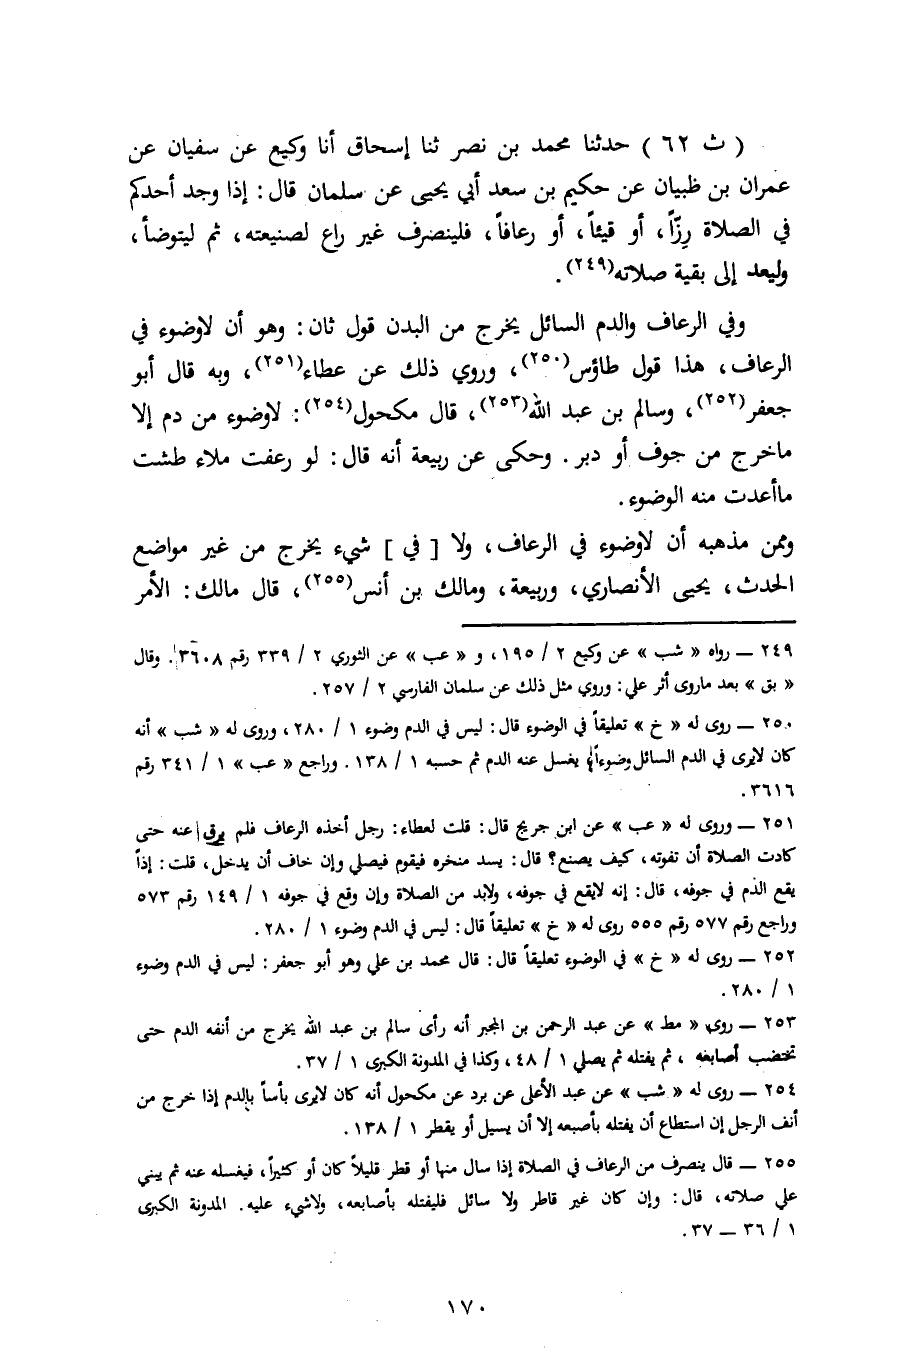 ( ث ٦٢ ) حدثنا محمد بن نصر ثنا إسحاق أنا وكيع عن سفيان عن
عمران بن ظبيان عن حكيم بن سعد أبي يحيى عن سلمان قال : إذا وجد أحدكم
في الصلاة رِزّاً ، أو قيئاً ، أو رعافاً ، فلينصرف غير راع لصنيعته ، ثم ليتوضأ ،
وليعد إلى بقية صلاته(٢٤٩) .
وفي الرعاف والدم السائل يخرج من البدن قول ثان : وهو أن لاوضوء في
الرعاف ، هذا قول طاؤس(٢٥٠) ، وروي ذلك عن عطاء(٢٥١) ، وبه قال أبو
جعفر(٢٥٢) ، وسالم بن عبد الله(٢٥٣) ، قال مكحول(٢٥٤) : لاوضوء من دم إلا
ماخرج من جوف أو دبر . وحكى عن ربيعة أنه قال : لو رعفت ملاء طشت
ماأعدت منه الوضوء .
وممن مذهبه أن لاوضوء في الرعاف ، ولا [ في ] شيء يخرج من غير مواضع
الحدث ، يحيى الأنصاري ، وربيعة ، ومالك بن أنس(٢٥٥) ، قال مالك : الأمر
٢٤٩ ــ رواه « شب » عن وكيع ٢ / ١٩٥ ، و « عب » عن الثوري ٢ / ٣٣٩ رقم ٣٦٠٨ . وقال
« بق » بعد ماروى أثر علي : وروي مثل ذلك عن سلمان الفارسي ٢ / ٢٥٧ .
٢٥٠ ــ روى له « خ » تعليقاً في الوضوء قال : ليس في الدم وضوء ١ / ٢٨٠ ، وروى له « شب » أنه
كان لايرى في الدم السائل وضوءاً يغسل عنه الدم ثم حسبه ١ / ١٣٨ . وراجع « عب » ١ / ٣٤١ رقم
٣٦١٦ .
٢٥١ ــ وروى له « عب » عن ابن جريج قال : قلت لعطاء : رجل أخذه الرعاف فلم يرق عنه حتى
كادت الصلاة أن تفوته ، كيف يصنع؟ قال : يسد منخره فيقوم فيصلي وإن خاف أن يدخل ، قلت : إذاً
يقع الدم في جوفه ، قال : إنه لايقع في جوفه ، ولابد من الصلاة وإن وقع في جوفه ١ / ١٤٩ رقم ٥٧٣
وراجع رقم ٥٧٧ رقم ٥٥٥ روى له « خ » تعليقاً قال : ليس في الدم وضوء ١ / ٢٨٠ .
٢٥٢ ــ روى له « خ » في الوضوء تعليقاً قال : قال محمد بن علي وهو أبو جعفر : ليس في الدم وضوء
١ / ٢٨٠ .
٢٥٣ ــ روى « مط » عن عبد الرحمن بن المجبر أنه رأى سالم بن عبد الله يخرج من أنفه الدم حتى
تختضب أصابعه ، ثم يفتله ثم يصلي ١ / ٤٨ ، وكذا في المدونة الكبرى ١ / ٣٧ .
٢٥٤ ــ روى له « شب » عن عبد الأعلى عن برد عن مكحول أنه كان لايرى بأساً بالدم إذا خرج من
أنف الرجل إن استطاع أن يفتله بأصبعه إلا أن يسيل أو يقطر ١ / ١٣٨ .
٢٥٥ ــ قال ينصرف من الرعاف في الصلاة إذا سال منها أو قطر قليلاً كان أو كثيراً ، فيغسله عنه ثم يبني
على صلاته ، قال : وإن كان غير قاطر ولا سائل فليفتله بأصابعه ، ولاشيء عليه . المدونة الكبرى
١ / ٣٦ ــ ٣٧ .
١٧٠